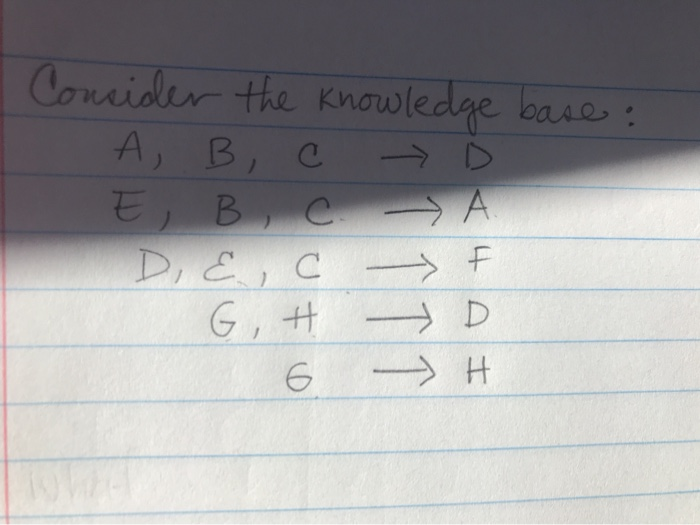 Consider the knowledge base:
A, B, C → D
E, B, C → A
D, E, C → F
G, H → D
G → H